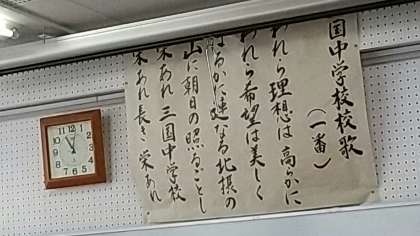 国中学校校歌
(一番)
われら理想は高らかに
われら希望は美しく
はるかに連なる北摂の
山に朝日の照るごとし
栄あれ 三国中学校
栄あれ長き 栄あれ